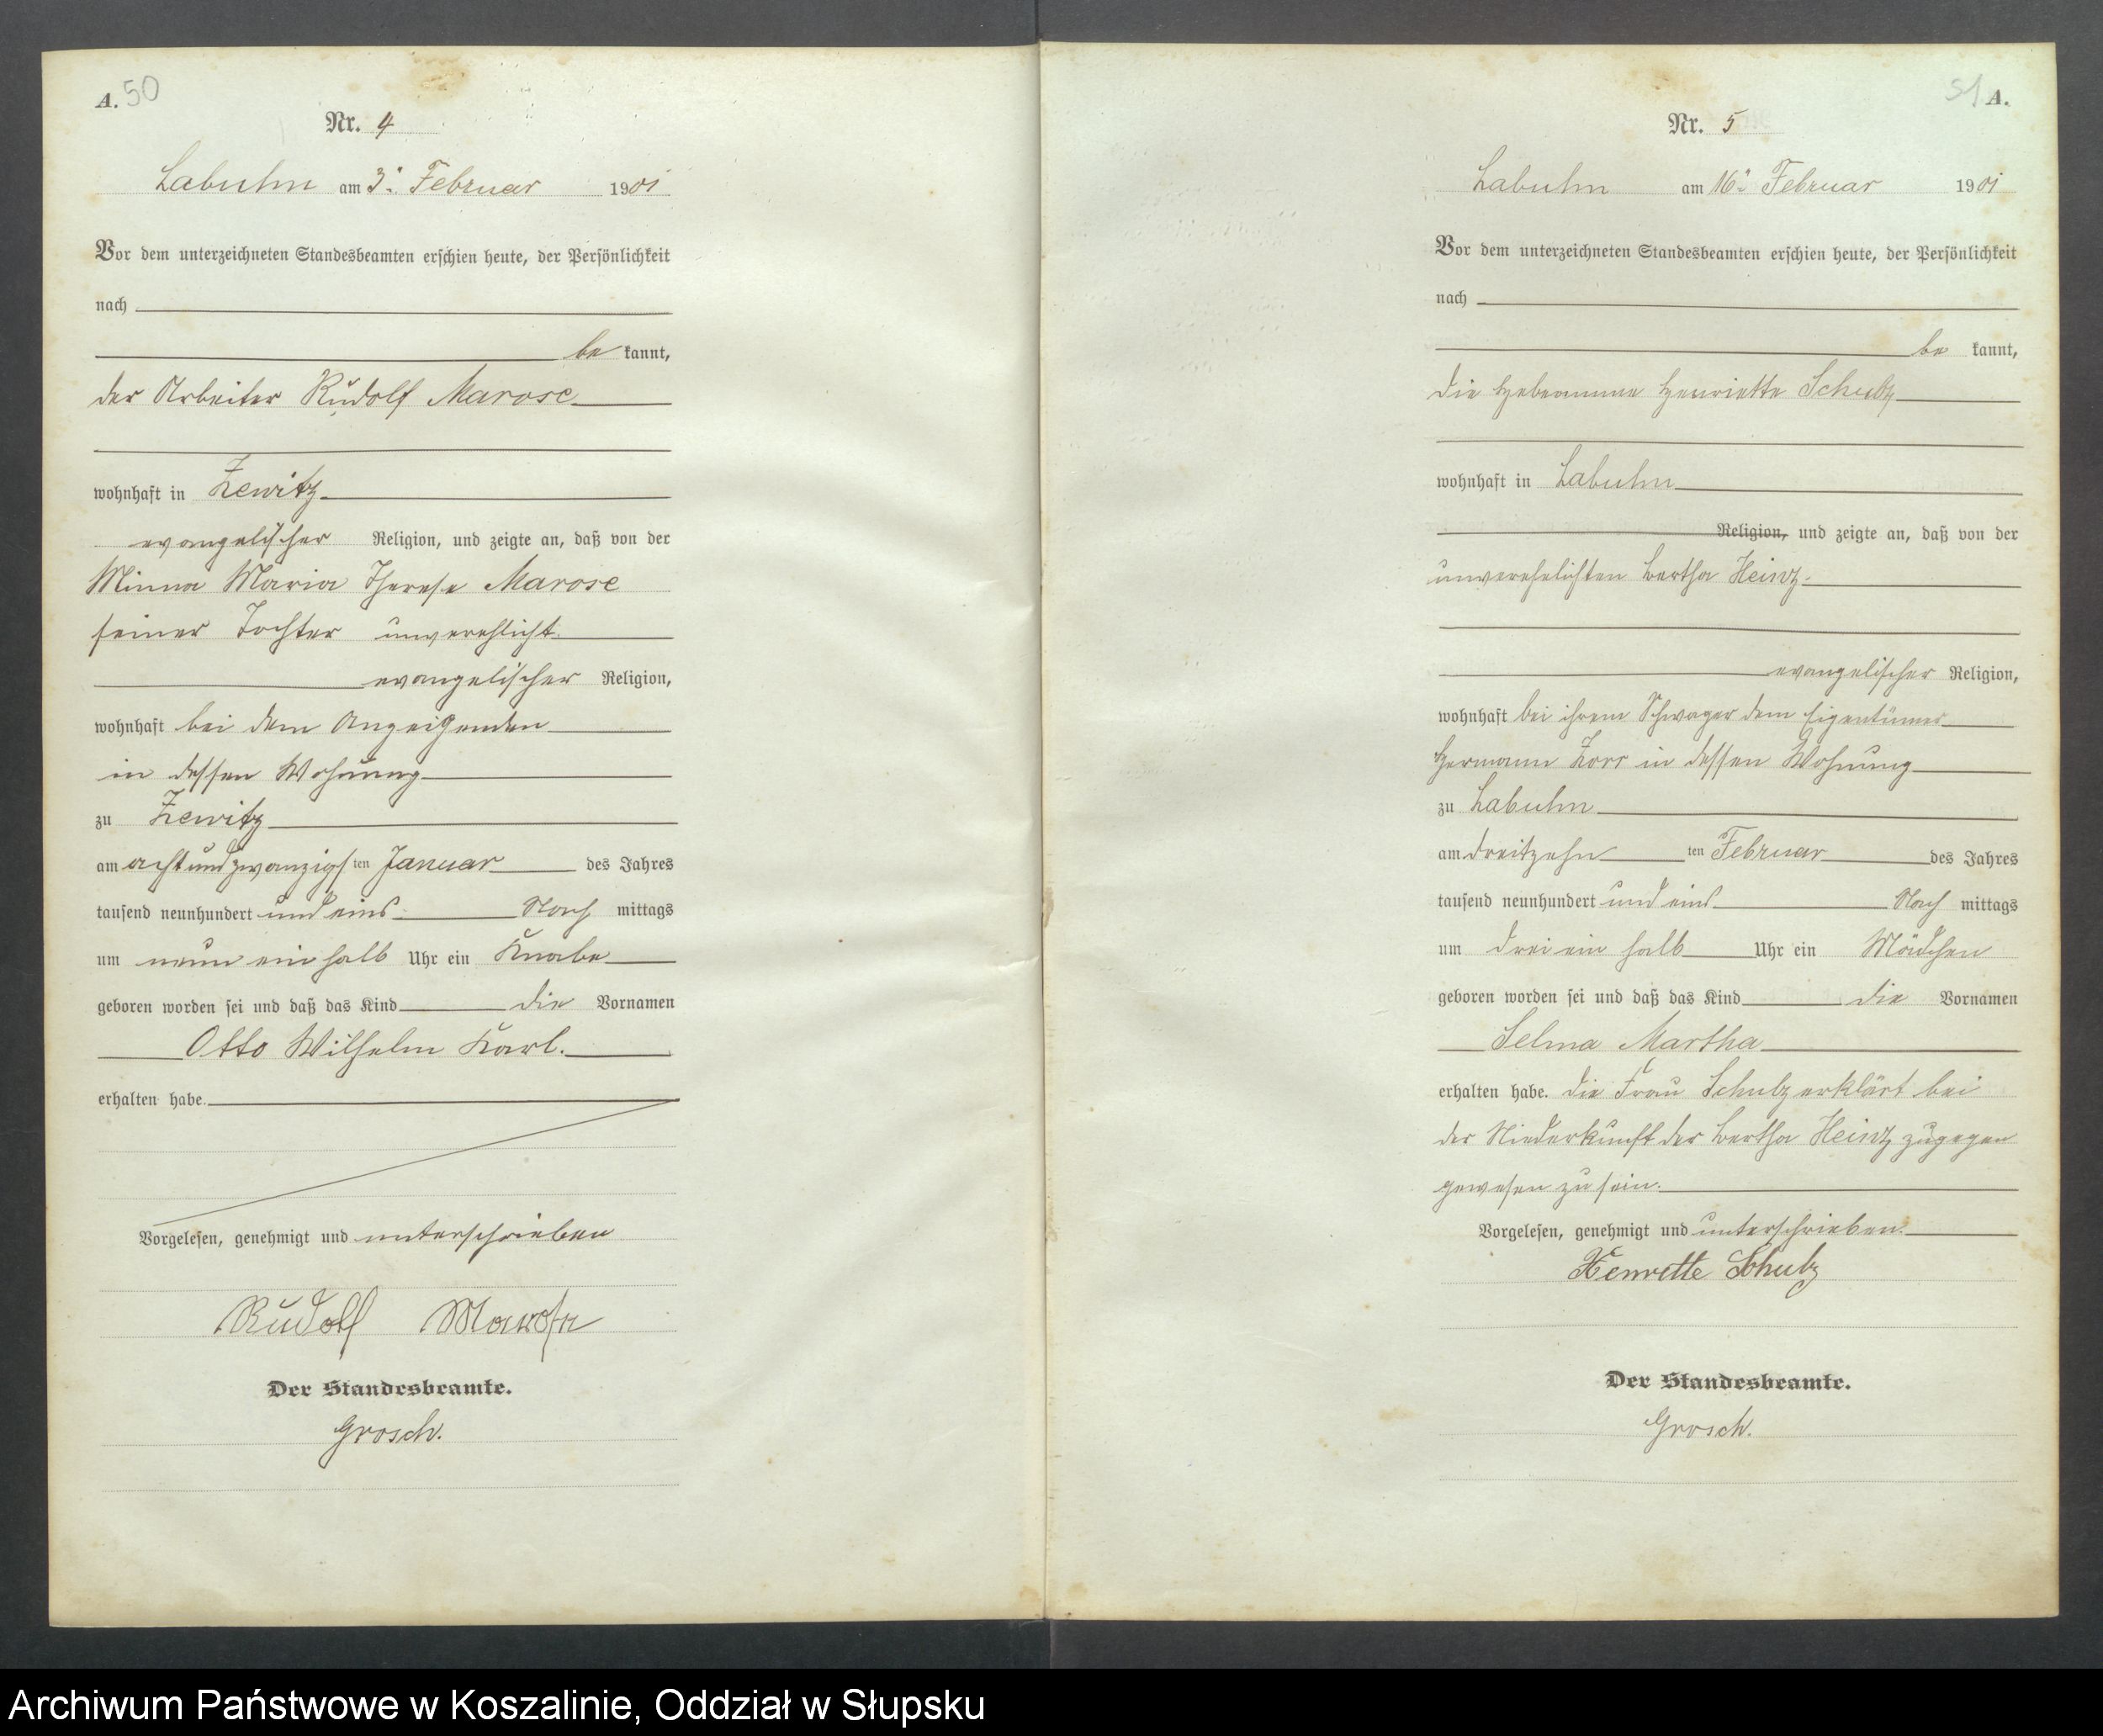 A. 50
Nr. 4
Labuhn am 3. Februar 1901
Vor dem unterzeichneten Standesbeamten erschien heute, der Persönlichkeit
nach
be kannt,
der Arbeiter Rudolf Marose
wohnhaft in Zewitz
evangelischer Religion, und zeigte an, daß von der
Minna Maria Therese Marose
seiner Tochter unverehlicht.
evangelischer Religion,
wohnhaft bei dem Anzeigenden
in dessen Wohnung
zu Zewitz
am acht und zwanzigs ten Januar des Jahres
tausend neunhundert und eins Nach mittags
um neun ein halb Uhr ein Knabe
geboren worden sei und daß das Kind die Vornamen
Otto Wilhelm Karl.
erhalten habe.
Vorgelesen, genehmigt und unterschrieben
Rudolf Marose
Der Standesbeamte.
Grosch.
51 A.
Nr. 5
Labuhn am 16. Februar 1901
Vor dem unterzeichneten Standesbeamten erschien heute, der Persönlichkeit
nach
be kannt,
die Hebeamme Henriette Schulz
wohnhaft in Labuhn
Religion, und zeigte an, daß von der
unverehelichten Bertha Heinz
evangelischer Religion,
wohnhaft bei ihrem Schwager dem Eigentümer
Hermann Zorr in dessen Wohnung
zu Labuhn
am dreitzehn ten Februar des Jahres
tausend neunhundert und eins Nach mittags
um drei ein halb Uhr ein Mädchen
geboren worden sei und daß das Kind die Vornamen
Selma Martha
erhalten habe. die Frau Schulz erklärt bei
der Niederkunft der Bertha Heinz zugegen
gewesen zu sein.
Vorgelesen, genehmigt und unterschrieben.
Henriette Schulz
Der Standesbeamte.
Grosch.
Archiwum Państwowe w Koszalinie, Oddział w Słupsku